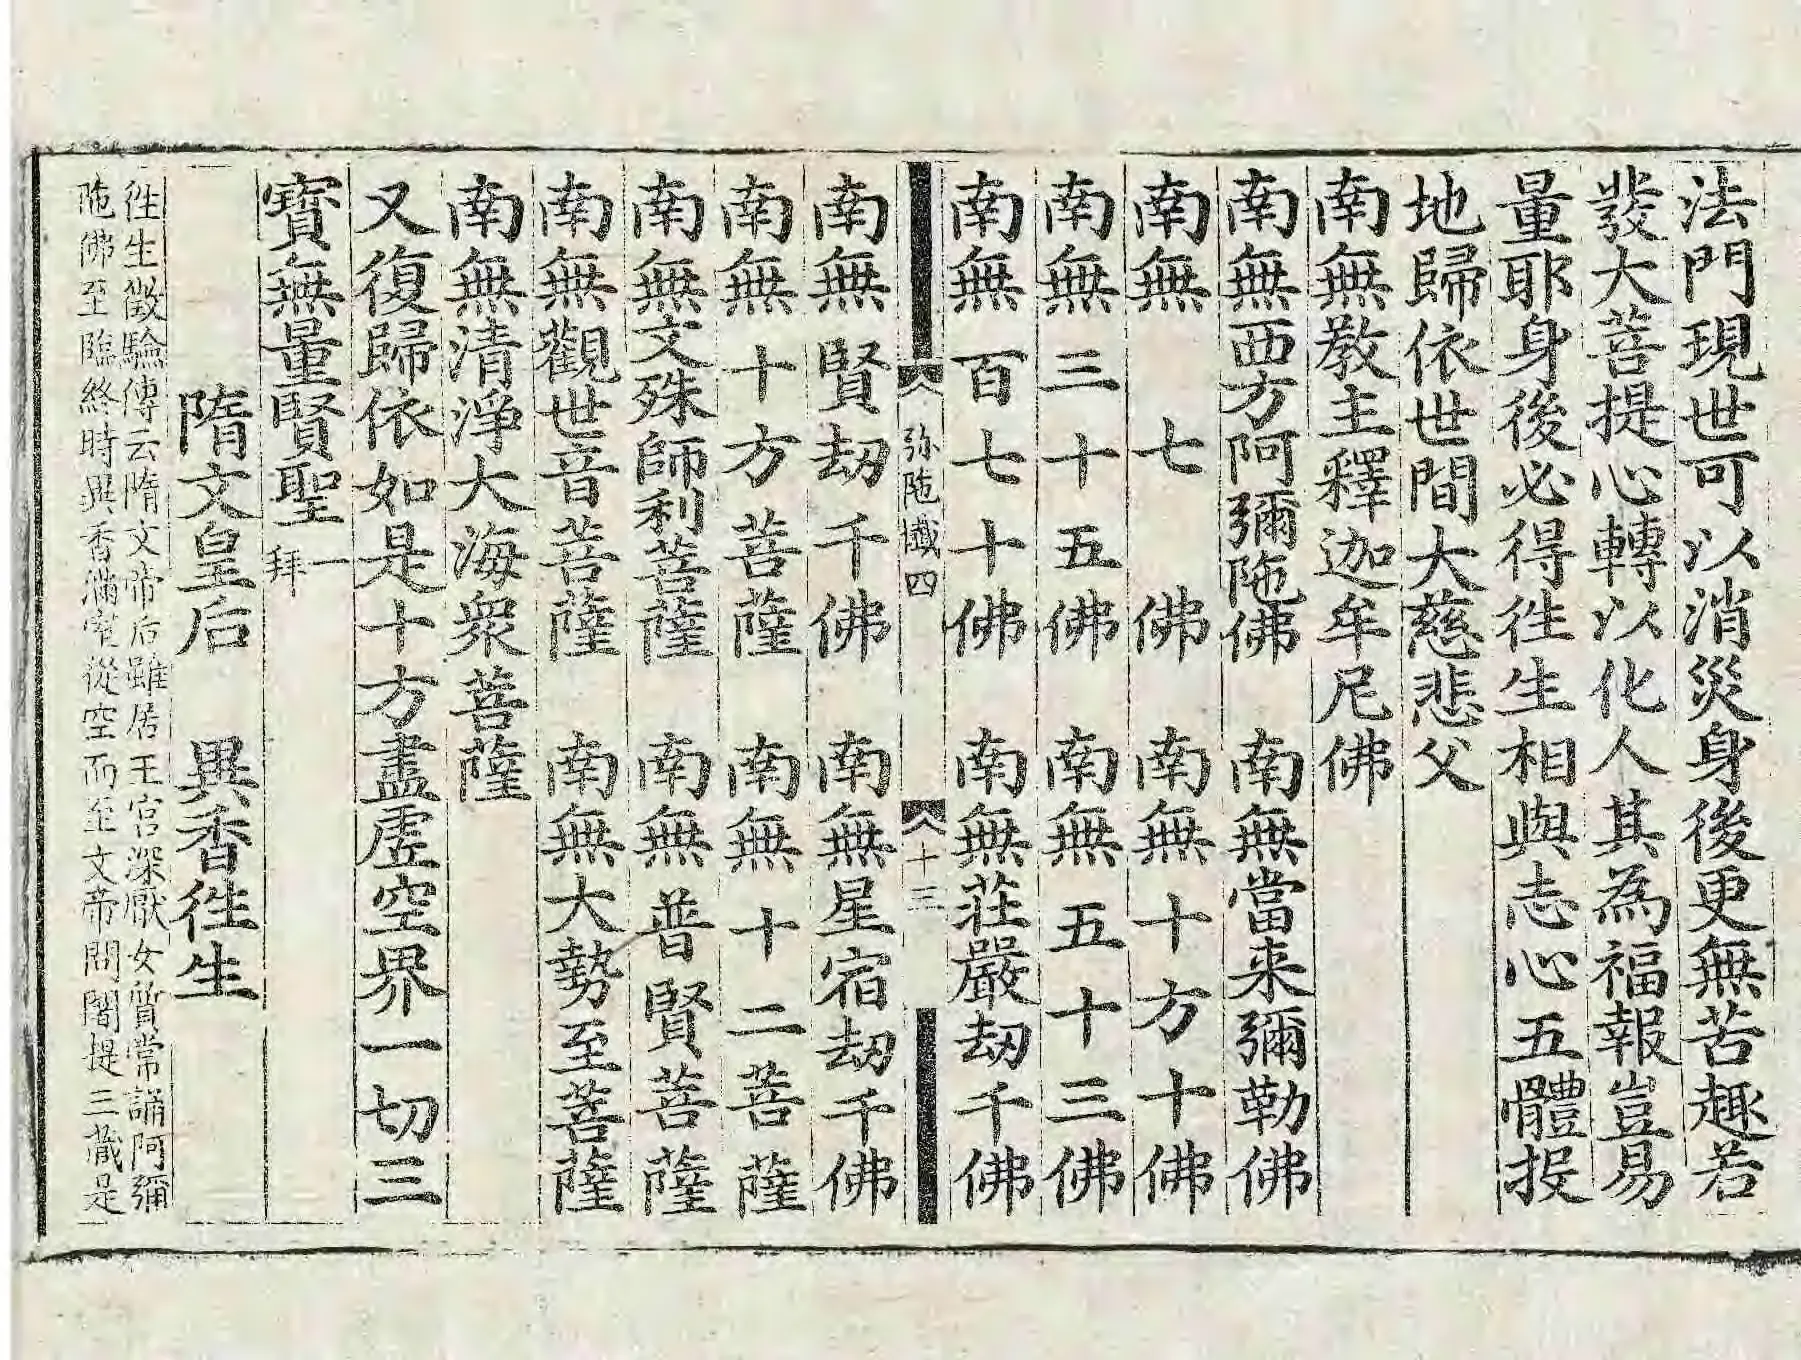 法門現世可以消災身後更無苦趣若
發大菩提心轉以化人其為福報豈易
量耶身後必得徃生相與志心五體投
地歸依世間大慈悲父
南無教主釋迦牟尼佛
南無西方阿彌陁佛 南無當来彌勒佛
南無七佛 南無十方十佛
南無三十五佛 南無五十三佛
南無百七十佛 南無莊嚴劫千佛
弥陁懴四 十三
南無賢劫千佛 南無星宿劫千佛
南無十方菩薩 南無十二菩薩
南無文殊師利菩薩 南無普賢菩薩
南無觀世音菩薩 南無大勢至菩薩
南無清淨大海衆菩薩
又復歸依如是十方盡虛空界一切三
寶無量賢聖一拜
隋文皇后 異香徃生
徃生徵驗傳云隋文帝后雖居王宫深厭女質常誦阿彌
陁佛至臨終時異香滿室從空而至文帝問闍提三藏是